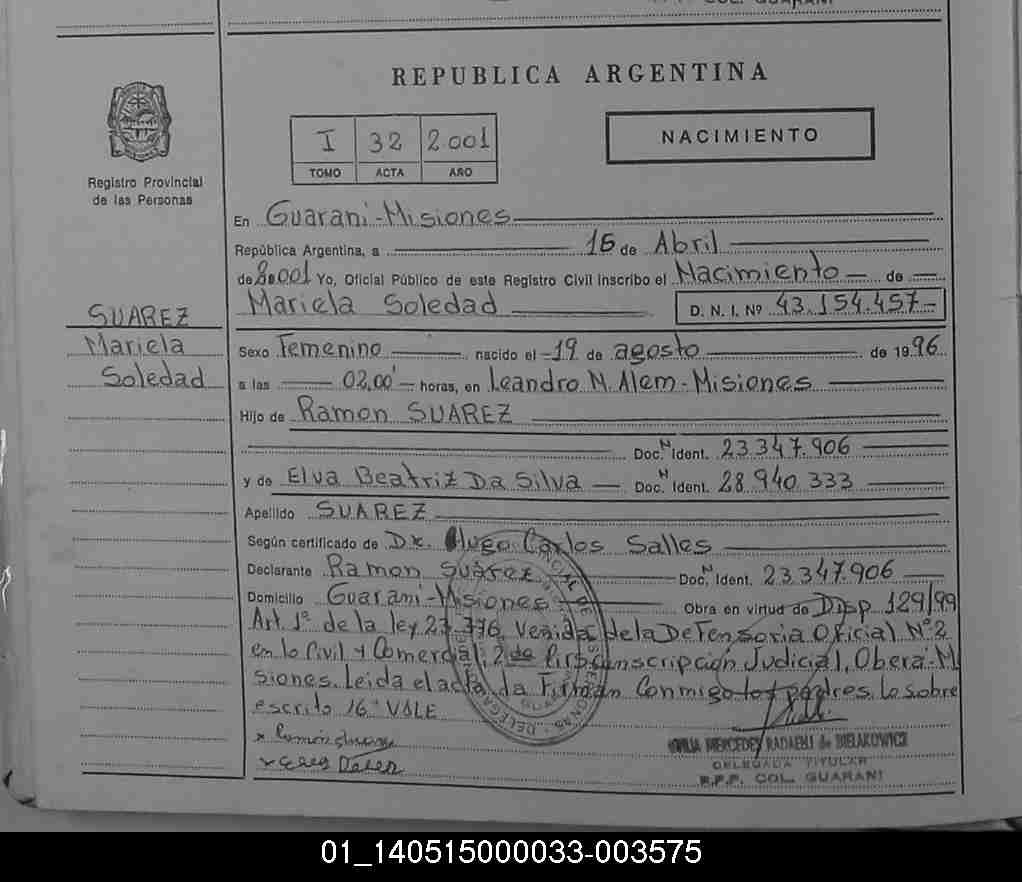 COL. GUARANI
REPUBLICA ARGENTINA
I 32 2.001
TOMO ACTA AÑO
NACIMIENTO
Registro Provincial
de las Personas
En Guarani-Misiones
República Argentina, a 16 de Abril
de 2.001 Yo, Oficial Público de este Registro Civil inscribo el Nacimiento de
Mariela Soledad D. N. I. Nº 43.154.457-
SUAREZ
Mariela
Soledad
Sexo Femenino nacido el -19 de agosto de 1996
a las 02,00' horas, en Leandro N. Alem-Misiones
Hijo de Ramon SUAREZ
Doc. N Ident. 23.347.906
y de Elva Beatriz Da Silva Doc. N Ident. 28.940.333
Apellido SUAREZ
Según certificado de Dr. Hugo Carlos Salles
Declarante Ramon Suárez Doc. N Ident. 23.347.906
Domicilio Guarani-Misiones Obra en virtud de Disp 129/99
Art. 1º de la ley 23.776, Venida de la Defensoria Oficial Nº2
en lo Civil y Comercial, 2da Circunscripción Judicial, Oberá-Mi
siones. Leida el acta, la Firman Conmigo los padres. Lo sobre
escrito 16" VALE
x Ramón Suarez
MERCEDES RADAELI de BIELAKOWICZ
DELEGADA TITULAR
R.P.P. COL. GUARANI
01_140515000033-003575